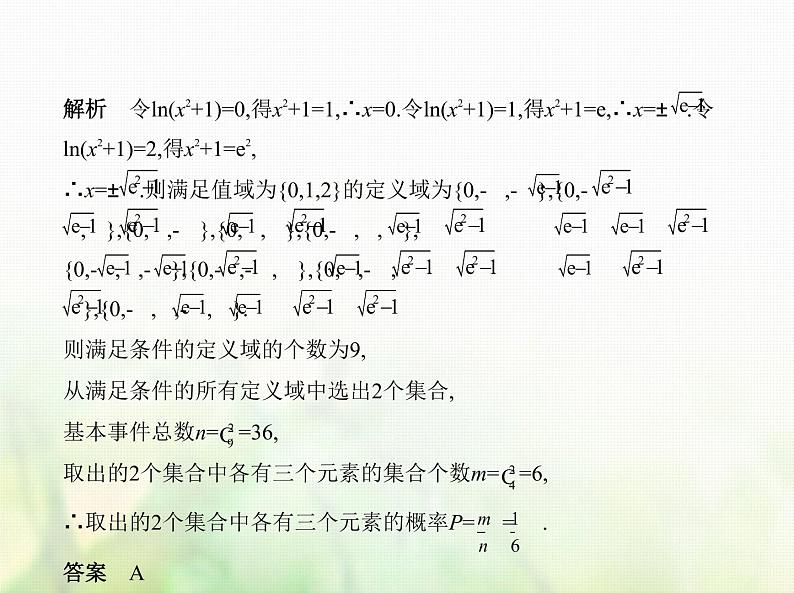 解析 令ln(x²+1)=0,得x²+1=1,∴x=0.令ln(x²+1)=1,得x²+1=e,∴x=±√e-1.令
ln(x²+1)=2,得x²+1=e²,
∴x=±√e²-1.则满足值域为{0,1,2}的定义域为{0,- ,- √e-1 },{0,- √e²-1
√e-1, √e²-1 },{0, ,- √e-1 },{0, , √e²-1 },{0,- , √e-1 , √e²-1 }, √e-1 √e-1 √e²-1
{0,- √e-1, ,- √e-1 },{0,- √e²-1 ,- , },{0, √e-1 ,- , √e²-1 √e²-1 √e-1 √e²-1
√e²-1 },{0,- , √e-1 ,- , √e-1 }. √e²-1 √e²-1
则满足条件的定义域的个数为9,
从满足条件的所有定义域中选出2个集合,
基本事件总数n=C²₉=36,
取出的2个集合中各有三个元素的集合个数m=C²₄=6,
∴取出的2个集合中各有三个元素的概率P=m/n=1/6.
答案 A